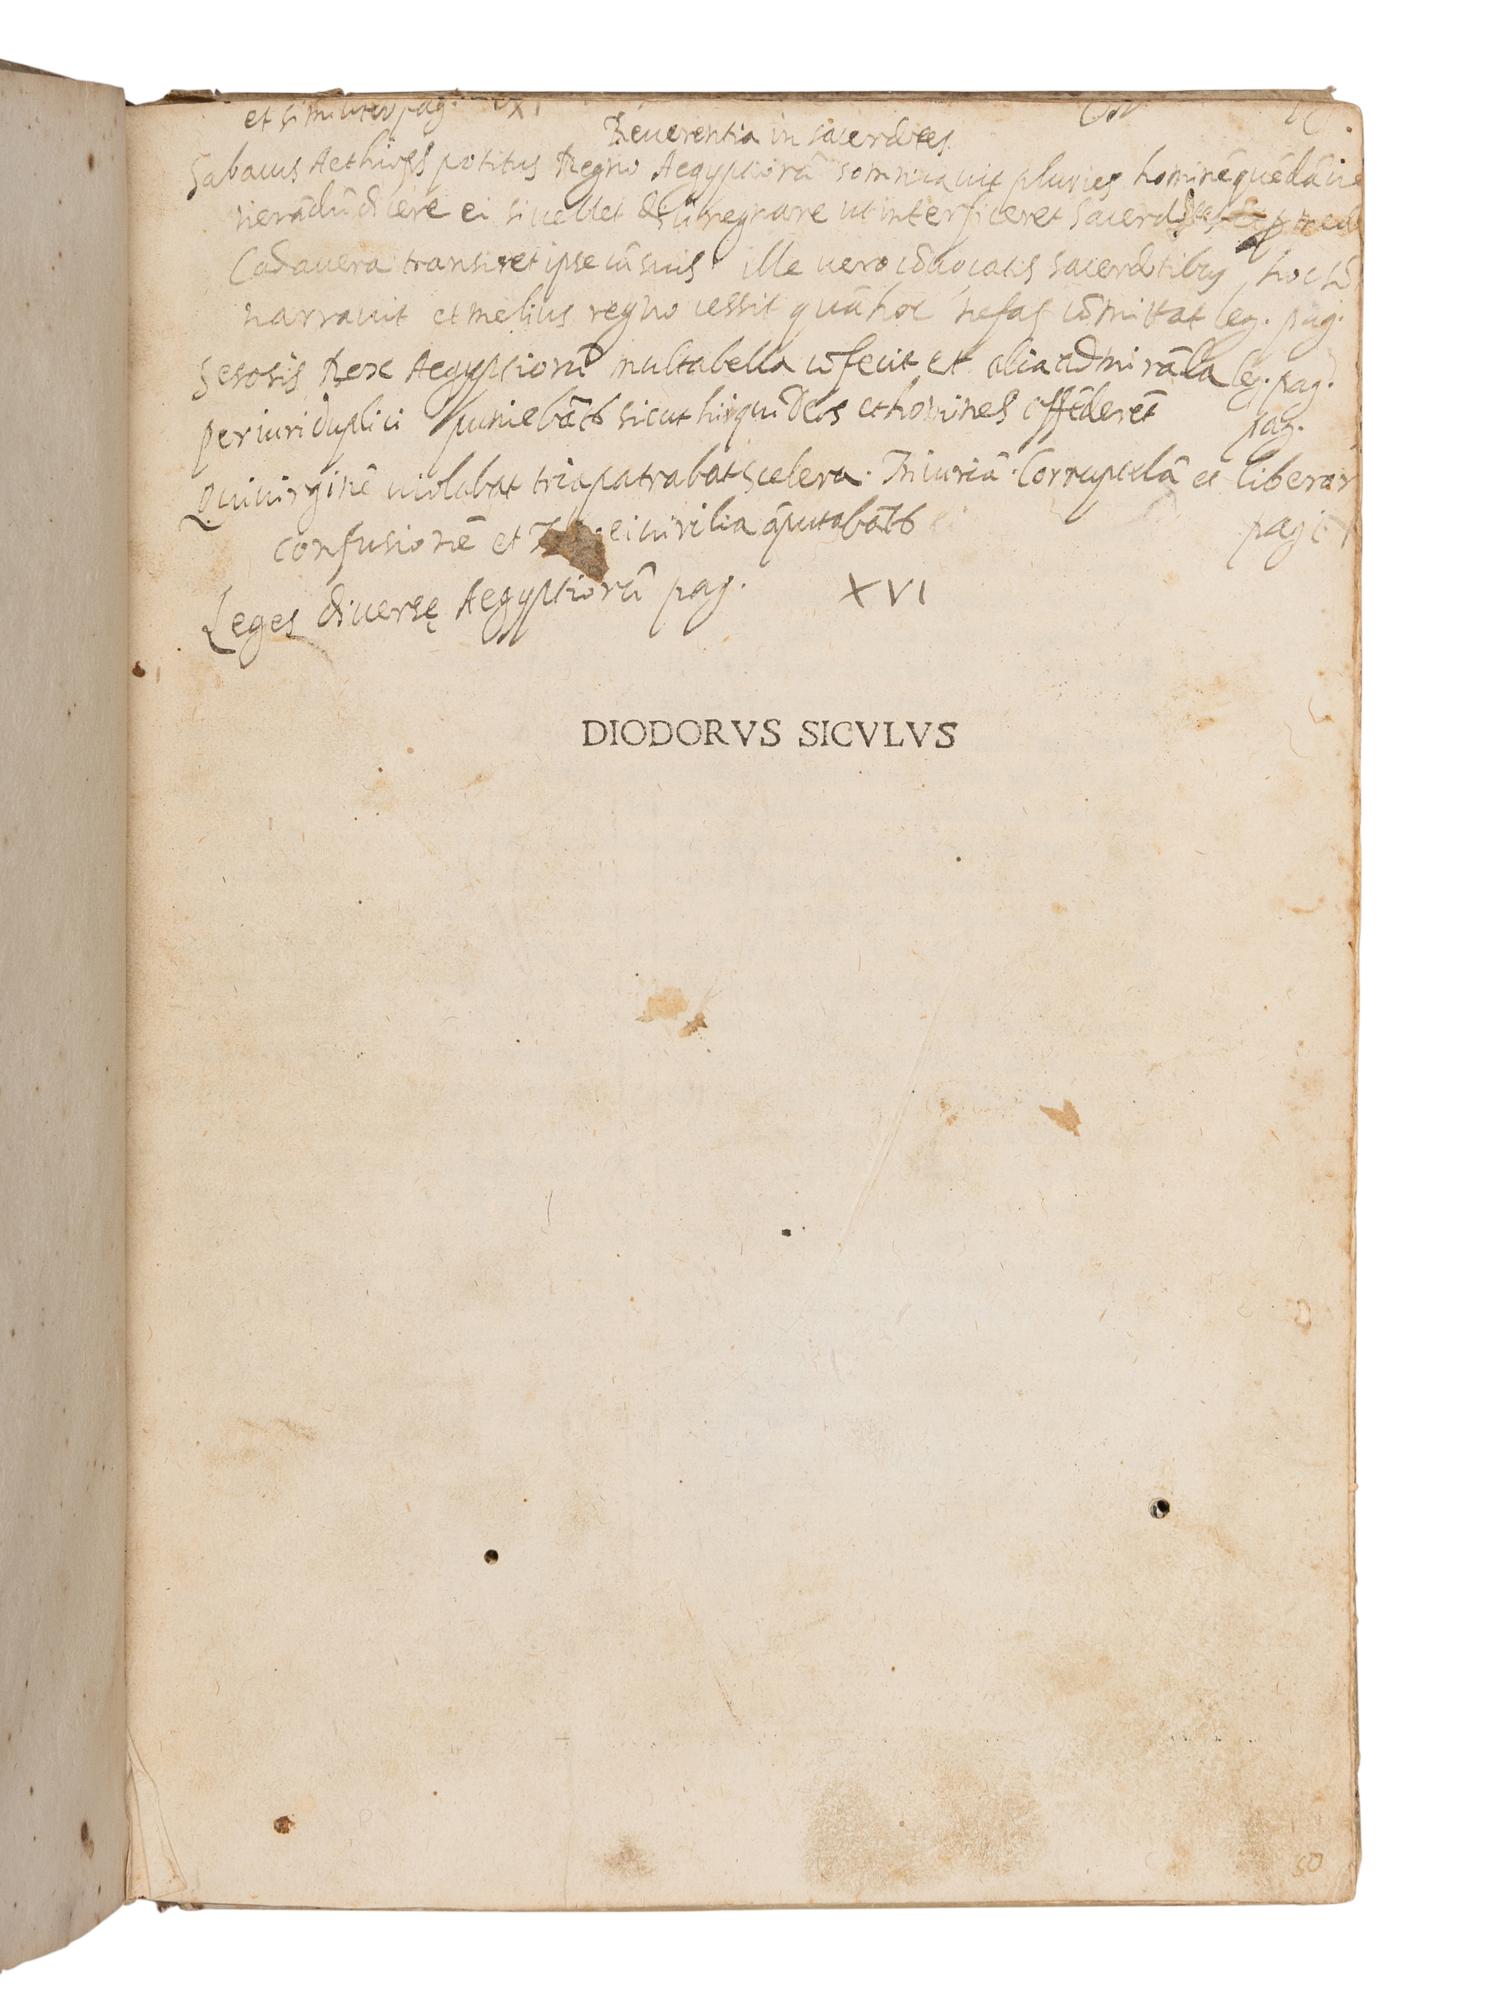 et similiter pag.
Reuerentia in sacerdotes
Sabacus Aethiops potitus Regno Aegyptiorū somniauit pluries hominē quēdā
dicere ei si uellet diu regnare ut interficeret sacerdotes
Cadauera transiret ipse cū suis ille uero cōuocatis sacerdotibus hoc
narrauit et melius regno cessit quā hoc nefas cōmittat leg. pag.
Sesosis Rex Aegyptiorū multa bella cōfecit et alia admirāla leg. pag.
periuri duplici puniebāt sicut hi qui Deos et homines offēderēt pag.
Qui uirginē uiolabat tria patrabat scelera. Iniuriā. Corruptelā et liberor
confusionē et ei uirilia āputabāt pag
Leges diuersę Aegyptiorū pag. XVI
DIODORVS SICVLVS
50